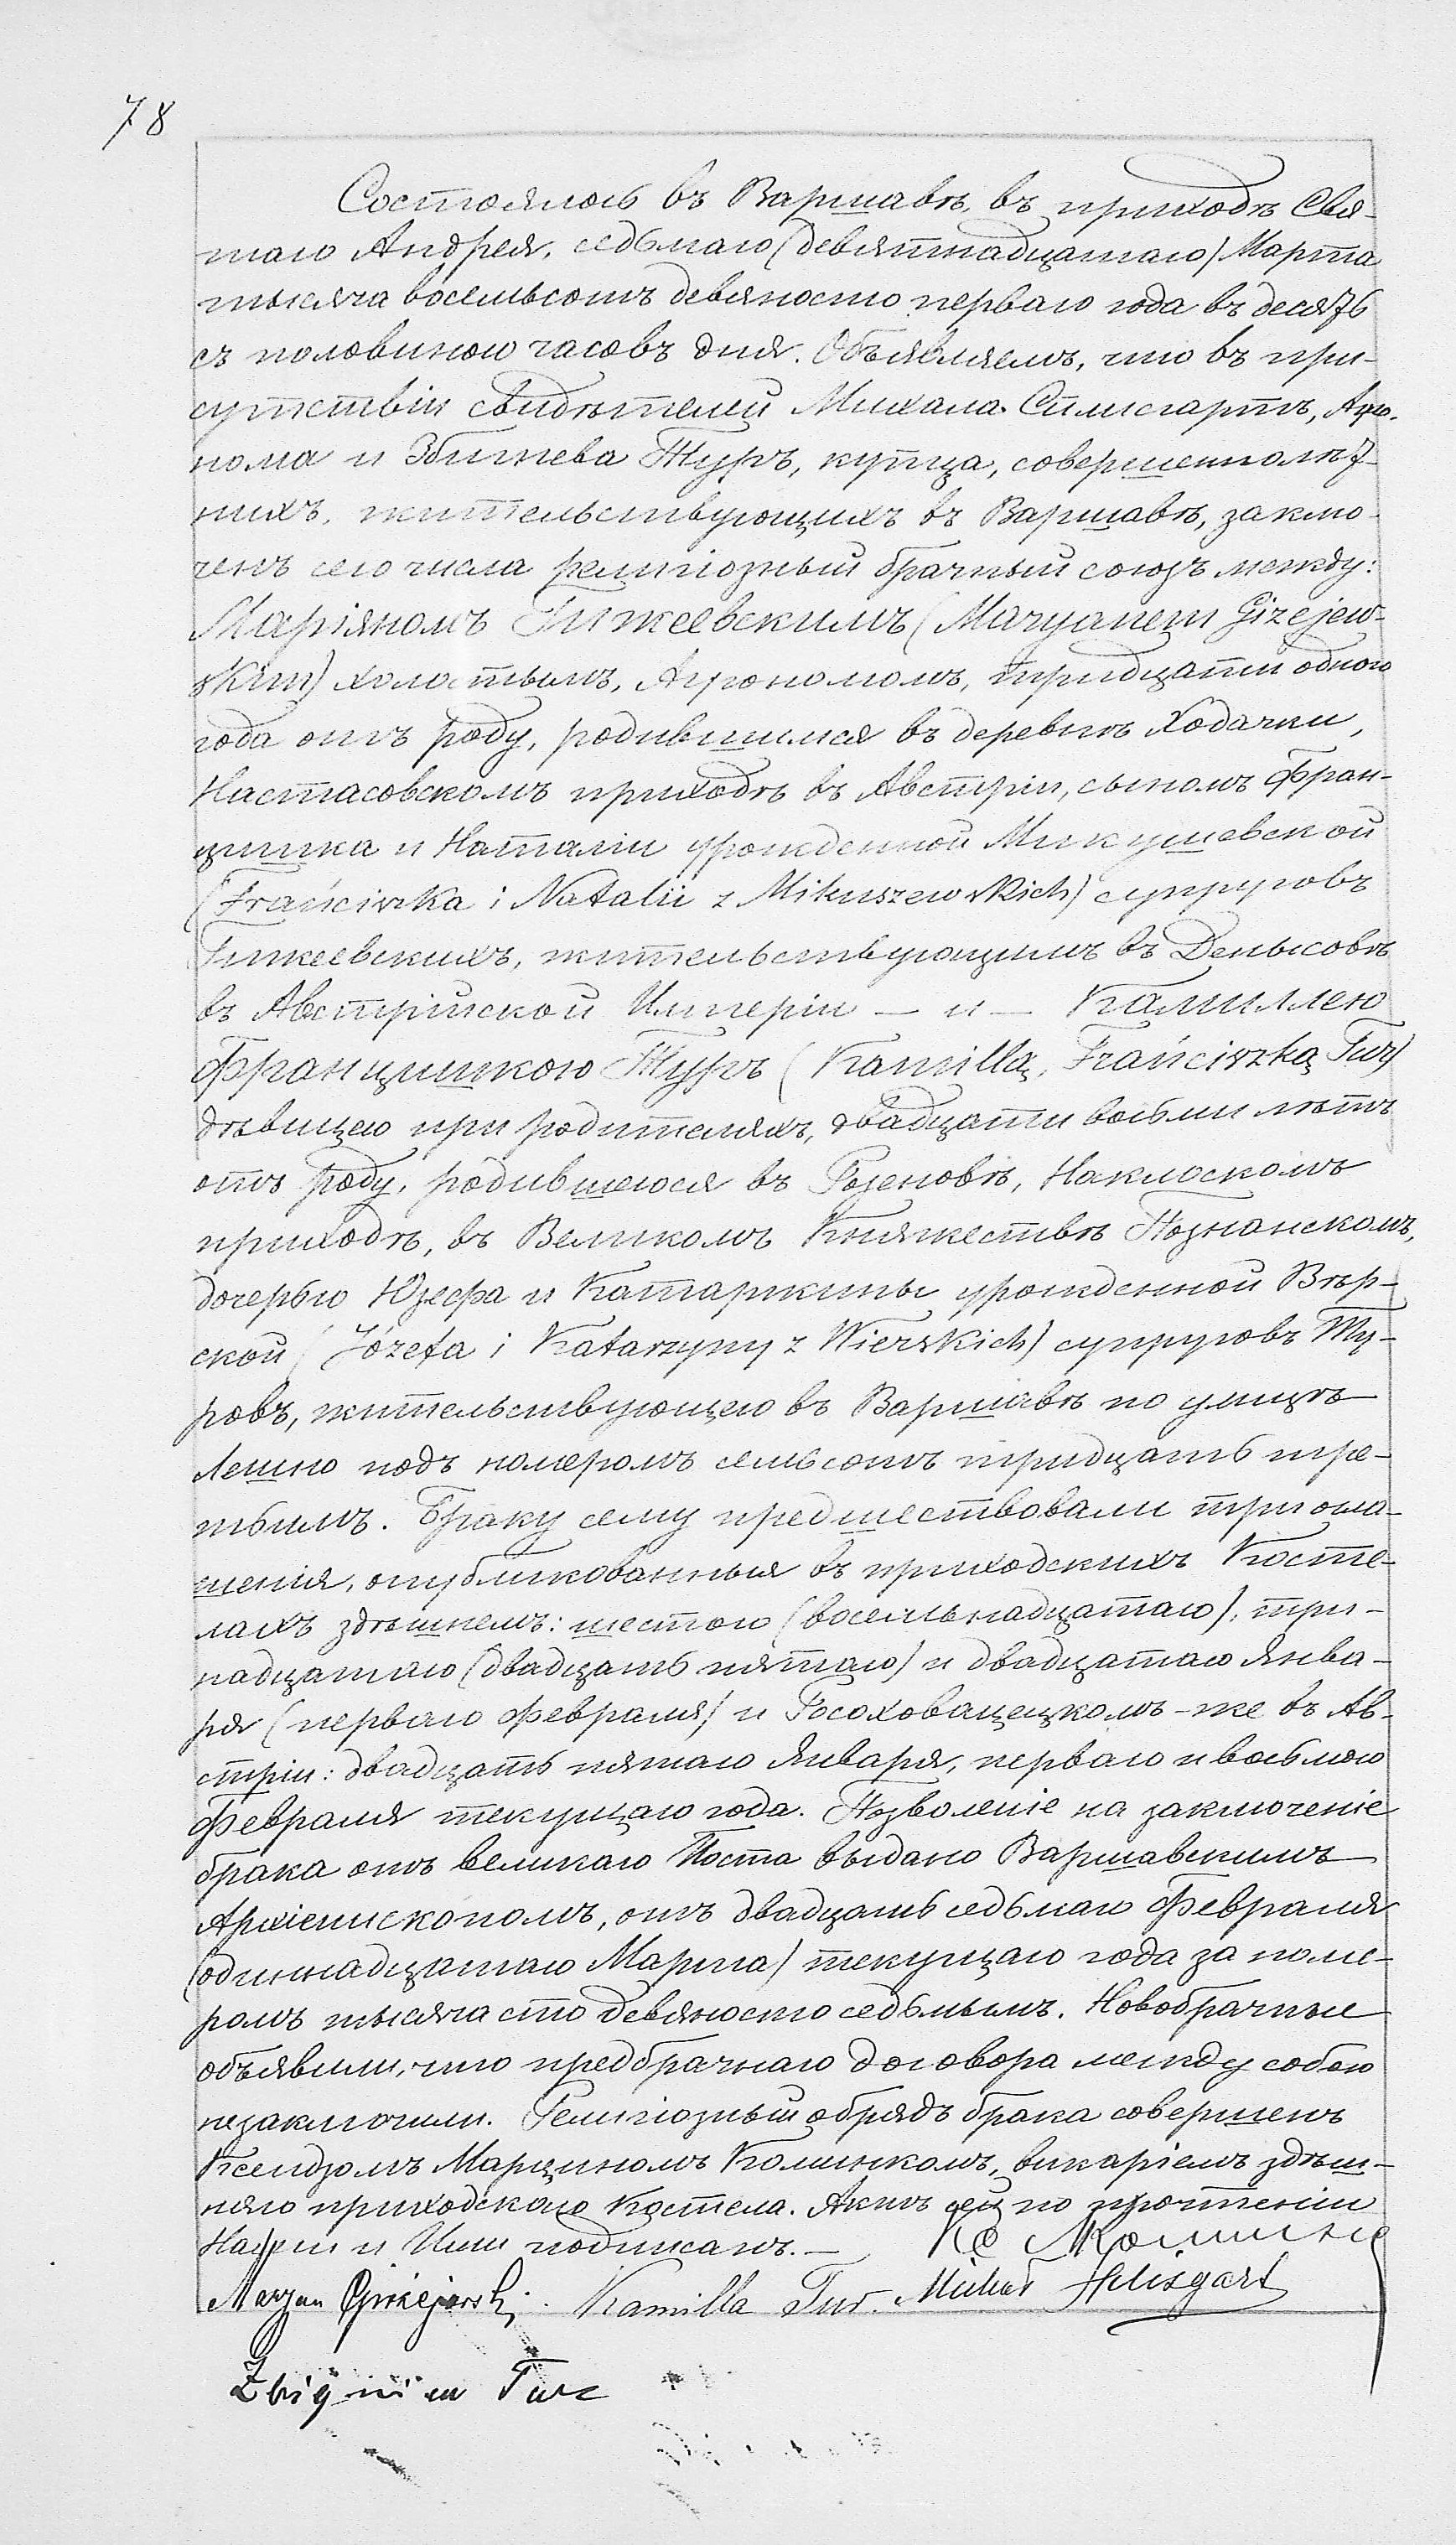 78
Состоялось въ Варшавѣ, въ приходѣ Свя-
таго Андрея, седьмаго (девятнадцатаго) Марта
тысяча восемьсотъ девяносто перваго года въ десять
съ половиною часовъ дня. Объявляемъ, что въ при-
сутствіи свидѣтелей Михала Силисгартъ, Агро-
нома и Збигнева Туръ, купца, совершеннолѣт-
нихъ, жительствующихъ въ Варшавѣ, заклю-
ченъ сего числа религіозный брачный союзъ между:
Маріяномъ Гижеевскимъ (Maryanem Giżejew-
skim) холостымъ, Агрономомъ, тридцати одного
года отъ роду, родившимся въ деревнѣ Ходачки,
Настасовскомъ приходѣ въ Австріи, сыномъ Фран-
цишка и Наталіи урожденной Микушевской
(Frańciszka i Natalii z Mikuszewskich) супруговъ
Гижеевскихъ, жительствующимъ въ Денысовѣ
въ Австрійской Имперіи — и — Камиллею
Францишкою Туръ (Kamillą, Frańciszką Tur)
дѣвицею при родителяхъ, двадцати восьми лѣтъ
отъ роду, родившеюся въ Розеновѣ, Наклоскомъ
приходѣ, въ Великомъ Княжествѣ Познанскомъ,
дочерью Юзефа и Катаржины урожденной Вѣр-
ской (Józefa i Katarzyny z Wierskich) супруговъ Ту-
ровъ, жительствующею въ Варшавѣ по улицѣ
Лешно подъ номеромъ семьсотъ тридцать тре-
тьимъ. Браку сему предшествовали три огла-
шенія, опубликованныя въ приходскихъ Косте-
лахъ здѣшнемъ: шестого (восемьнадцатаго), три-
надцатаго (двадцать пятаго) и двадцатаго Янва-
ря (перваго Февраля) и Росоховацецкомъ-же въ Ав-
стріи: двадцать пятаго Января, перваго и восьмого
Февраля текущаго года. Позволеніе на заключеніе
брака отъ великаго Поста выдано Варшавскимъ
Архіепископомъ, отъ двадцать седьмаго Февраля
(одиннадцатаго Марта) текущаго года за номе-
ромъ тысяча сто девяносто седьмымъ. Новобрачные
объявили, что предбрачнаго договора между собою
незаключили. Религіозный обрядъ брака совершенъ
Ксендзомъ Марциномъ Колинкомъ, викаріемъ здѣш-
няго приходскаго Костела. Актъ сей по прочтеніи
Нами и Ими подписанъ. —
Maryan Giżejewski. Kamilla Tur. Michał Silisgart
Zbigniew Tur